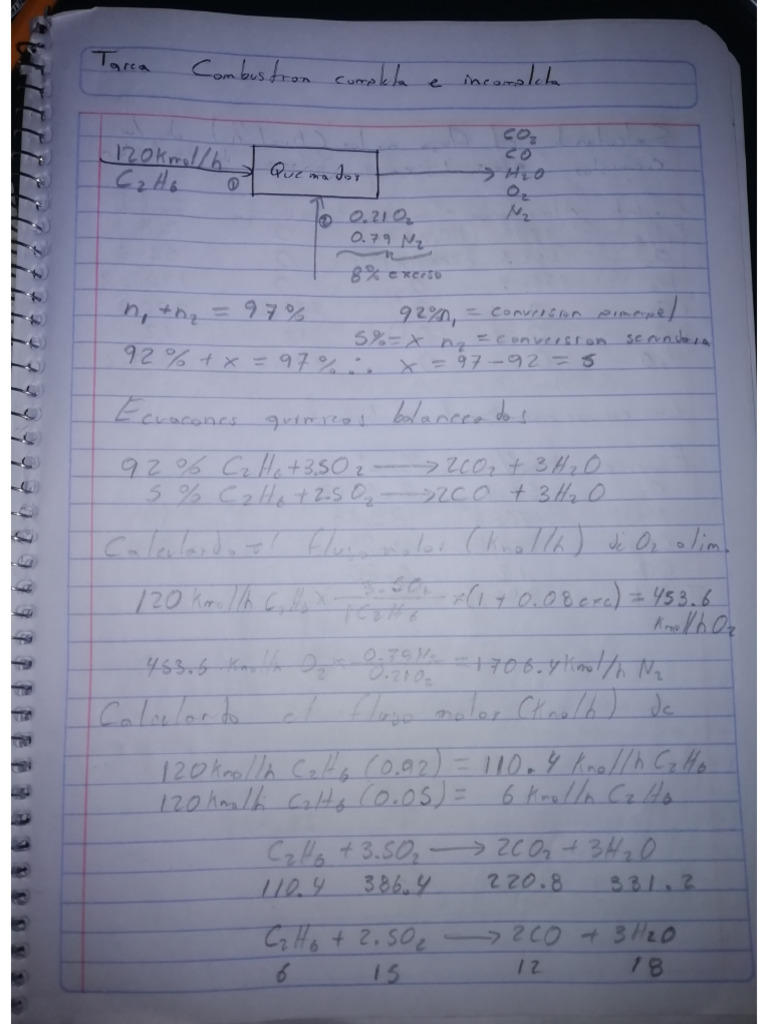 Tarea Combustion completa e incompleta
120 Kmol/h
C2H6
①
Quemador
CO2
CO
H2O
O2
N2
② 0.21 O2
0.79 N2
8% exceso
n1 + n2 = 97% 92% n1 = conversion principal
5% = x n2 = conversion secundaria
92% + x = 97% ∴ x = 97 - 92 = 5
Ecuacones quimicas balanceadas
92 % C2H6 + 3.5O2 → 2CO2 + 3H2O
5 % C2H6 + 2.5O2 → 2CO + 3H2O
Calculando el flujo molar (Kmol/h) de O2 alim.
120 Kmol/h C2H6 x 3.5O2 / 1C2H6 x (1 + 0.08 exc) = 453.6
Kmol/h O2
453.6 Kmol/h O2 x 0.79N2 / 0.21O2 = 1706.4 Kmol/h N2
Calculando el flujo molar (Kmol/h) de
120 Kmol/h C2H6 (0.92) = 110.4 Kmol/h C2H6
120 Kmol/h C2H6 (0.05) = 6 Kmol/h C2H6
C2H6 + 3.5O2 → 2CO2 + 3H2O
110.4 386.4 220.8 331.2
C2H6 + 2.5O2 → 2CO + 3H2O
6 15 12 18